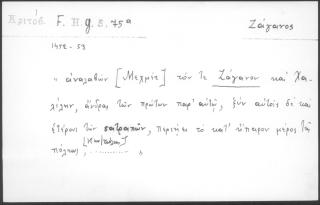 Κριτόβ. F. H. g. 5. 75α Ζάγανος
1452-53
" ἀναλαβὼν [Μεχμὲτ] τόν τε Ζάγανον καὶ Χα-
λίλην, ἄνδρας τῶν πρώτων παρ' αὐτῷ, ξὺν αὐτοῖς δὲ καὶ
ἑτέρους τῶν σατραπῶν, περιῄει τὸ κατ' ἤπειρον μέρος τῆς
πόλεως,